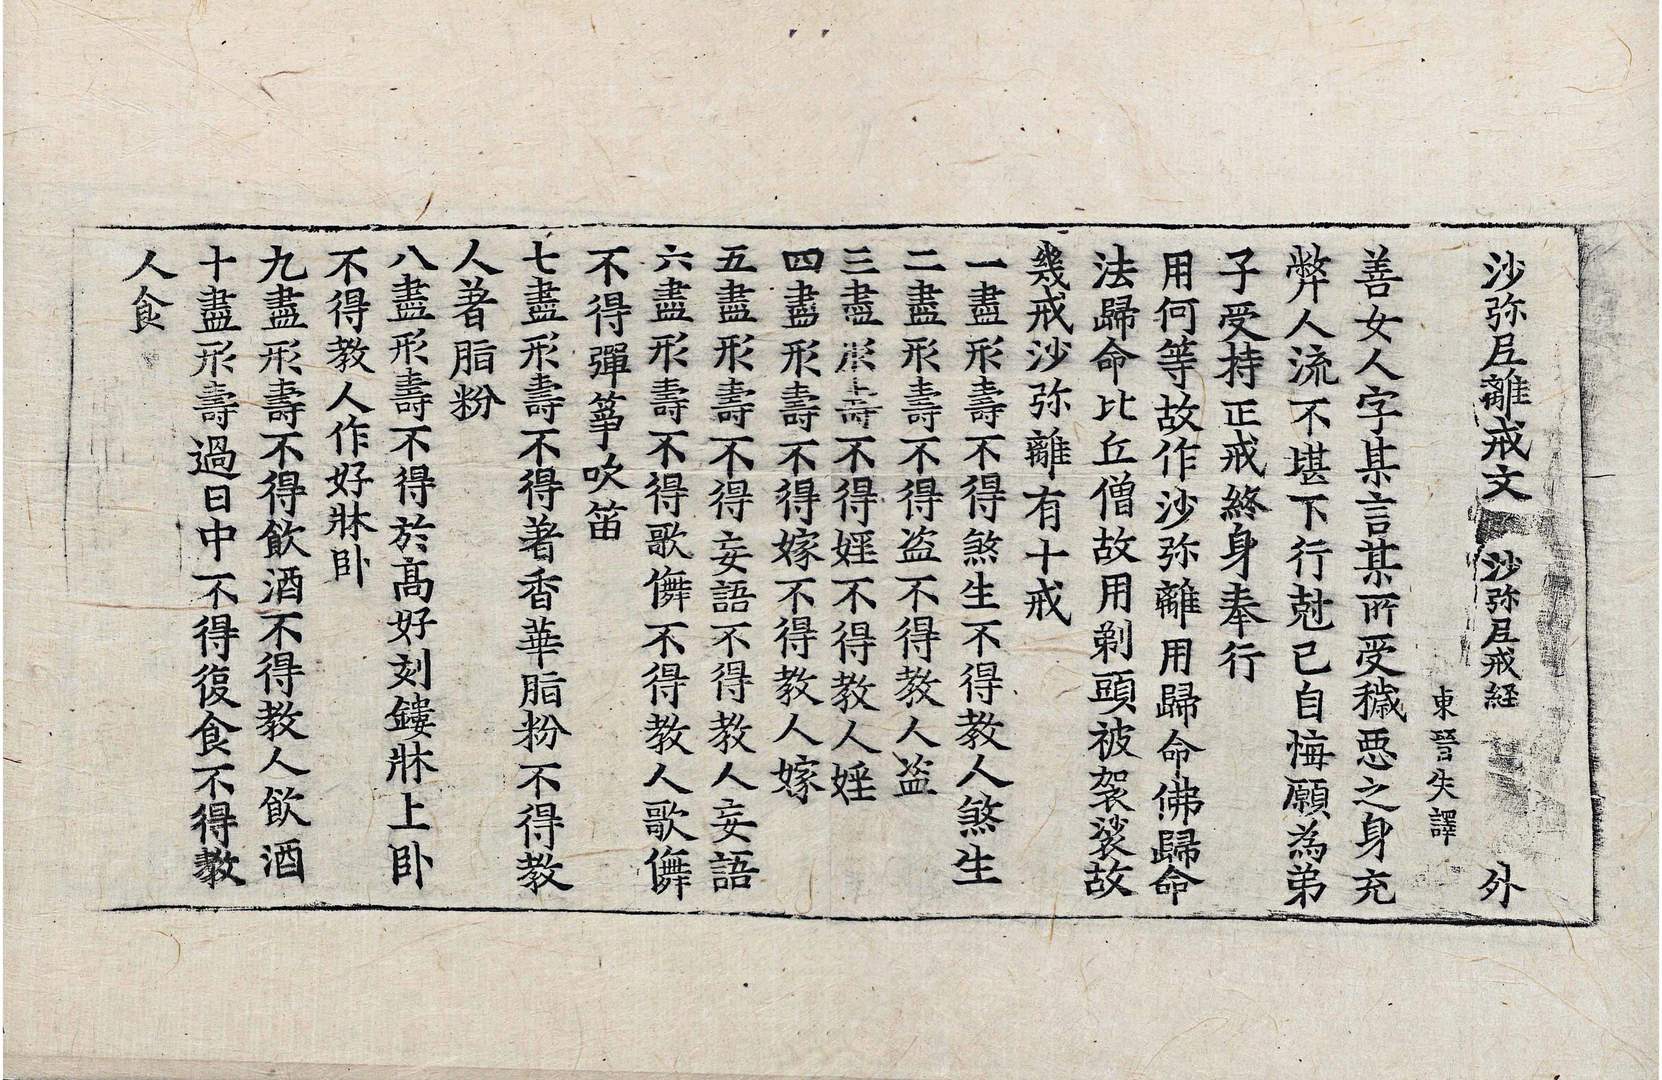 沙弥尼離戒文 沙弥尼戒経 外
東晉失譯
善女人字某言某所受穢惡之身充
弊人流不堪下行尅己自悔願為弟
子受持正戒終身奉行
用何等故作沙弥離用歸命佛歸命
法歸命比丘僧故用剃頭被袈裟故
幾戒沙弥離有十戒
一盡形壽不得煞生不得教人煞生
二盡形壽不得盗不得教人盗
三盡形壽不得婬不得教人婬
四盡形壽不得嫁不得教人嫁
五盡形壽不得妄語不得教人妄語
六盡形壽不得歌儛不得教人歌儛
不得彈箏吹笛
七盡形壽不得著香華脂粉不得教
人著脂粉
八盡形壽不得於髙好刻鏤牀上卧
不得教人作好牀卧
九盡形壽不得飲酒不得教人飲酒
十盡形壽過日中不得復食不得教
人食